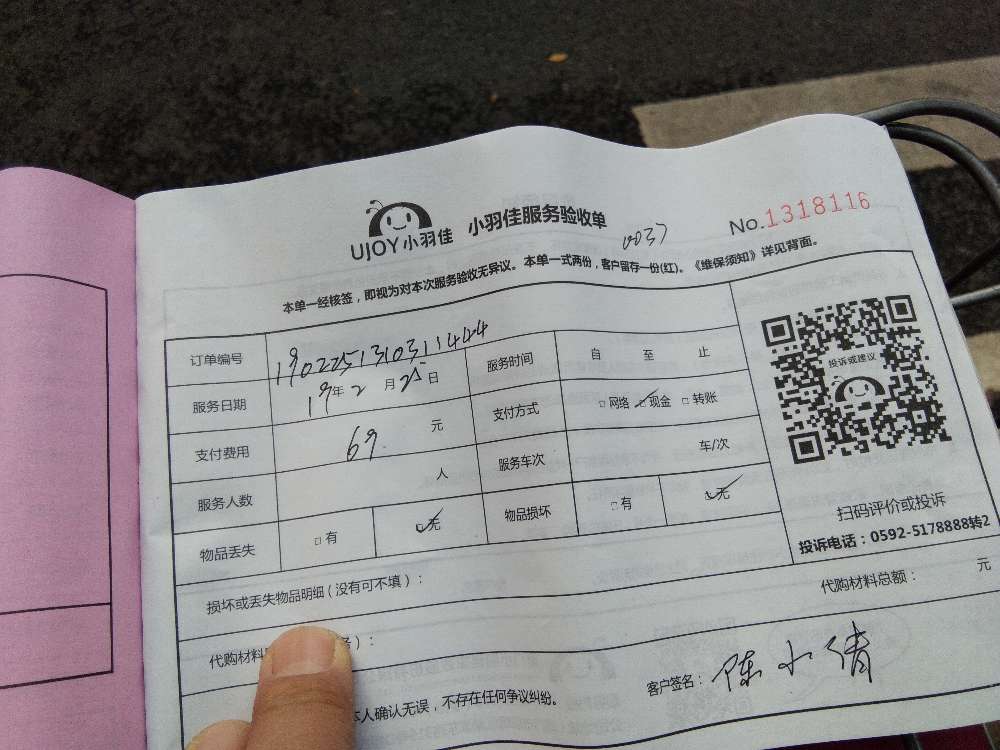 UJOY小羽佳 小羽佳服务验收单 No.1318116
0037
本单一经核签，即视为对本次服务验收无异议。本单一式两份，客户留存一份(红)。《维保须知》详见背面。
订单编号 19022513103111444 服务时间 自 至 止
服务日期 19年2月25日 支付方式 □网络 ☑现金 □转账
支付费用 69. 元 服务车次 车/次
服务人数 人 物品损坏 □有 ☑无
物品丢失 □有 ☑无
投诉或建议
扫码评价或投诉
投诉电话：0592-5178888转2
损坏或丢失物品明细（没有可不填）：
代购材料 ）： 代购材料总额： 元
本人确认无误，不存在任何争议纠纷。 客户签名：陈小倩